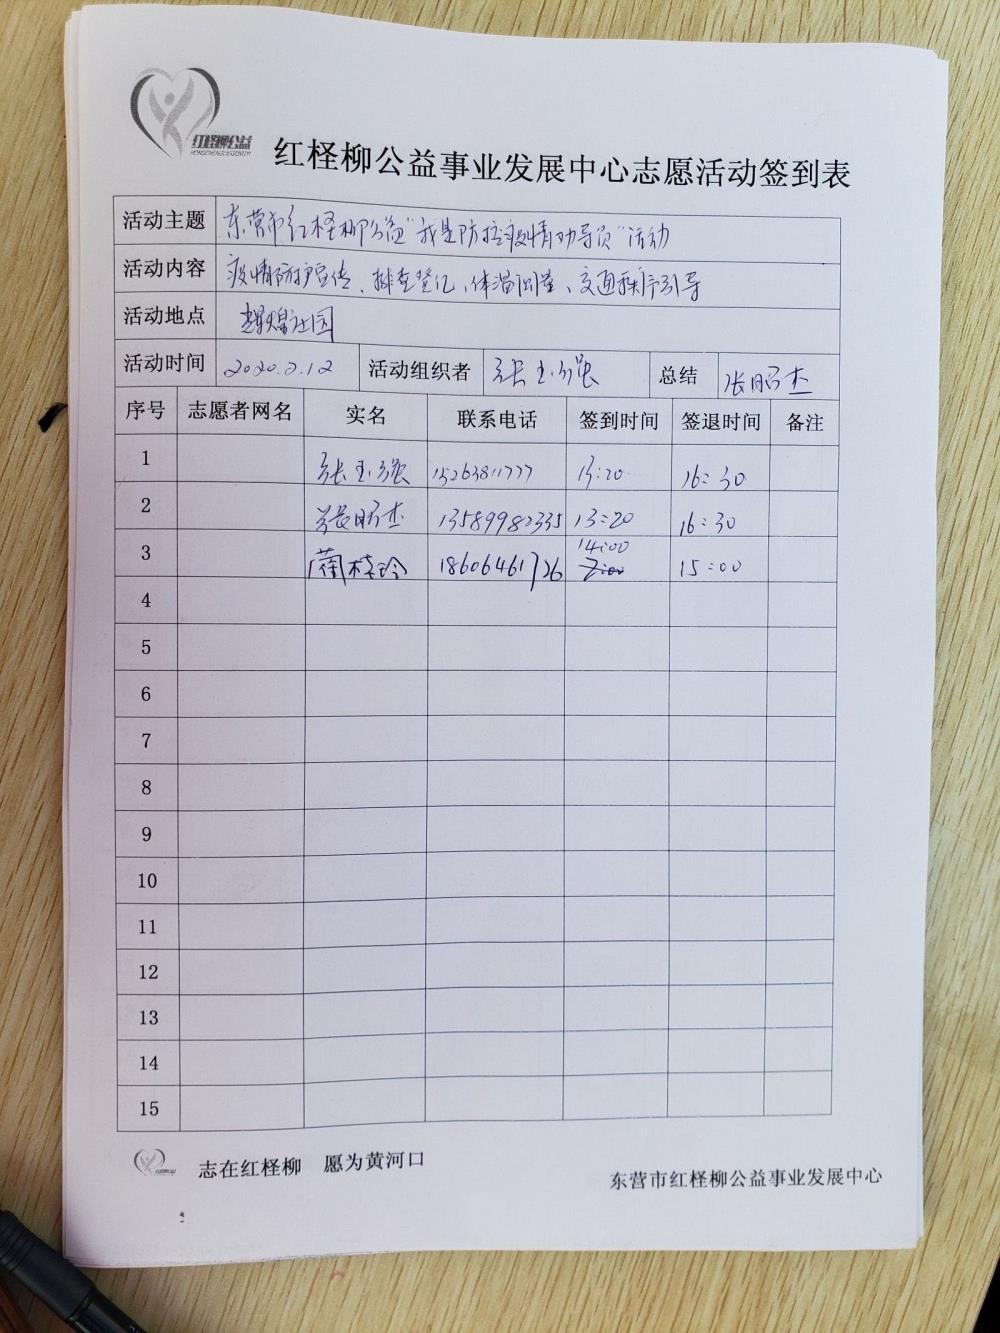 红柽柳公益
HONGCHENGLIUGONGYI
红柽柳公益事业发展中心志愿活动签到表
活动主题 东营市红柽柳公益"我是防控疫情劝导员"活动
活动内容 疫情防护宣传、排查登记、体温测量、交通秩序引导
活动地点 辉煌社园
活动时间 2020.2.12 活动组织者 张玉强 总结 张昭杰
序号 志愿者网名 实名 联系电话 签到时间 签退时间 备注
1 张玉强 15263811777 13:20 16:30
2 张昭杰 13589982335 13:20 16:30
14:00
3 蔺桂玲 18606461726 7:00 15:00
4
5
6
7
8
9
10
11
12
13
14
15
志在红柽柳 愿为黄河口
东营市红柽柳公益事业发展中心